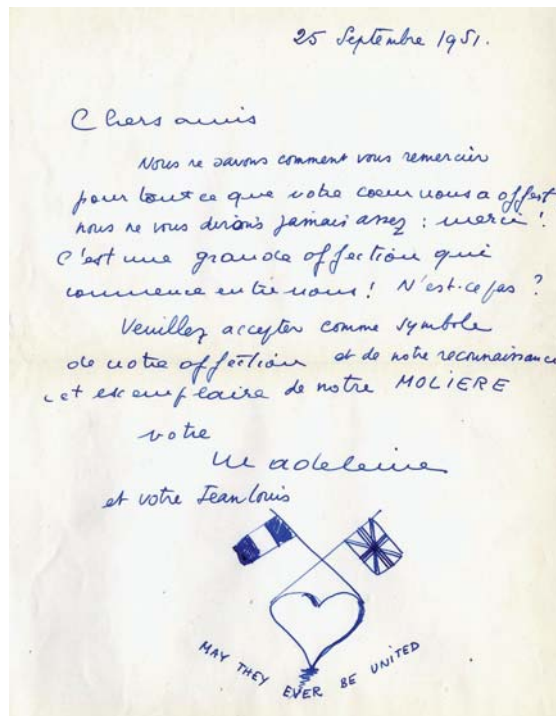 25 Septembre 1951.
Chers amis
Nous ne savons comment vous remercier
pour tout ce que votre cœur nous a offert
nous ne vous dirons jamais assez : merci !
C'est une grande affection qui
commence entre nous ! N'est-ce pas ?
Veuillez accepter comme symbole
de notre affection et de notre reconnaissance
cet exemplaire de notre MOLIERE
votre
Madeleine
et votre Jean Louis
MAY THEY EVER BE UNITED